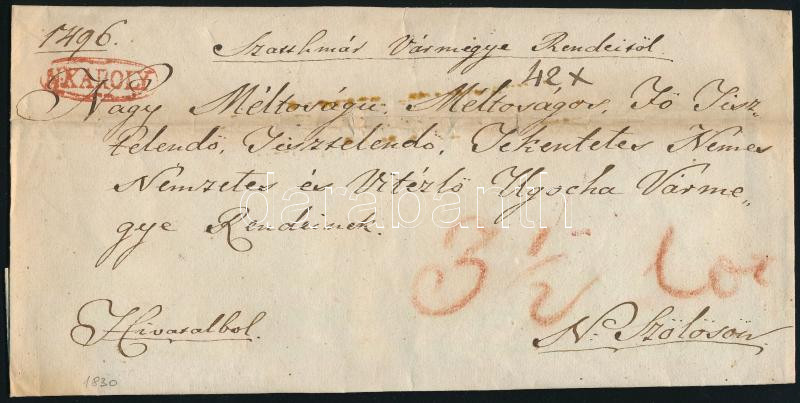 1496.
Szathmár Vármegye Rendeitöl
N.KAROLY
42 x
Nagy Méltoságu, Méltoságos, Fö Tisz-
telendö, Tisztelendö, Tekentetes Nemes
Nemzetes és Vitézlö Ugocha Várme-
gye Rendeinek.
darabanth
3 1/2 Lot
Hivatalbol.
N. Szölösön
1830